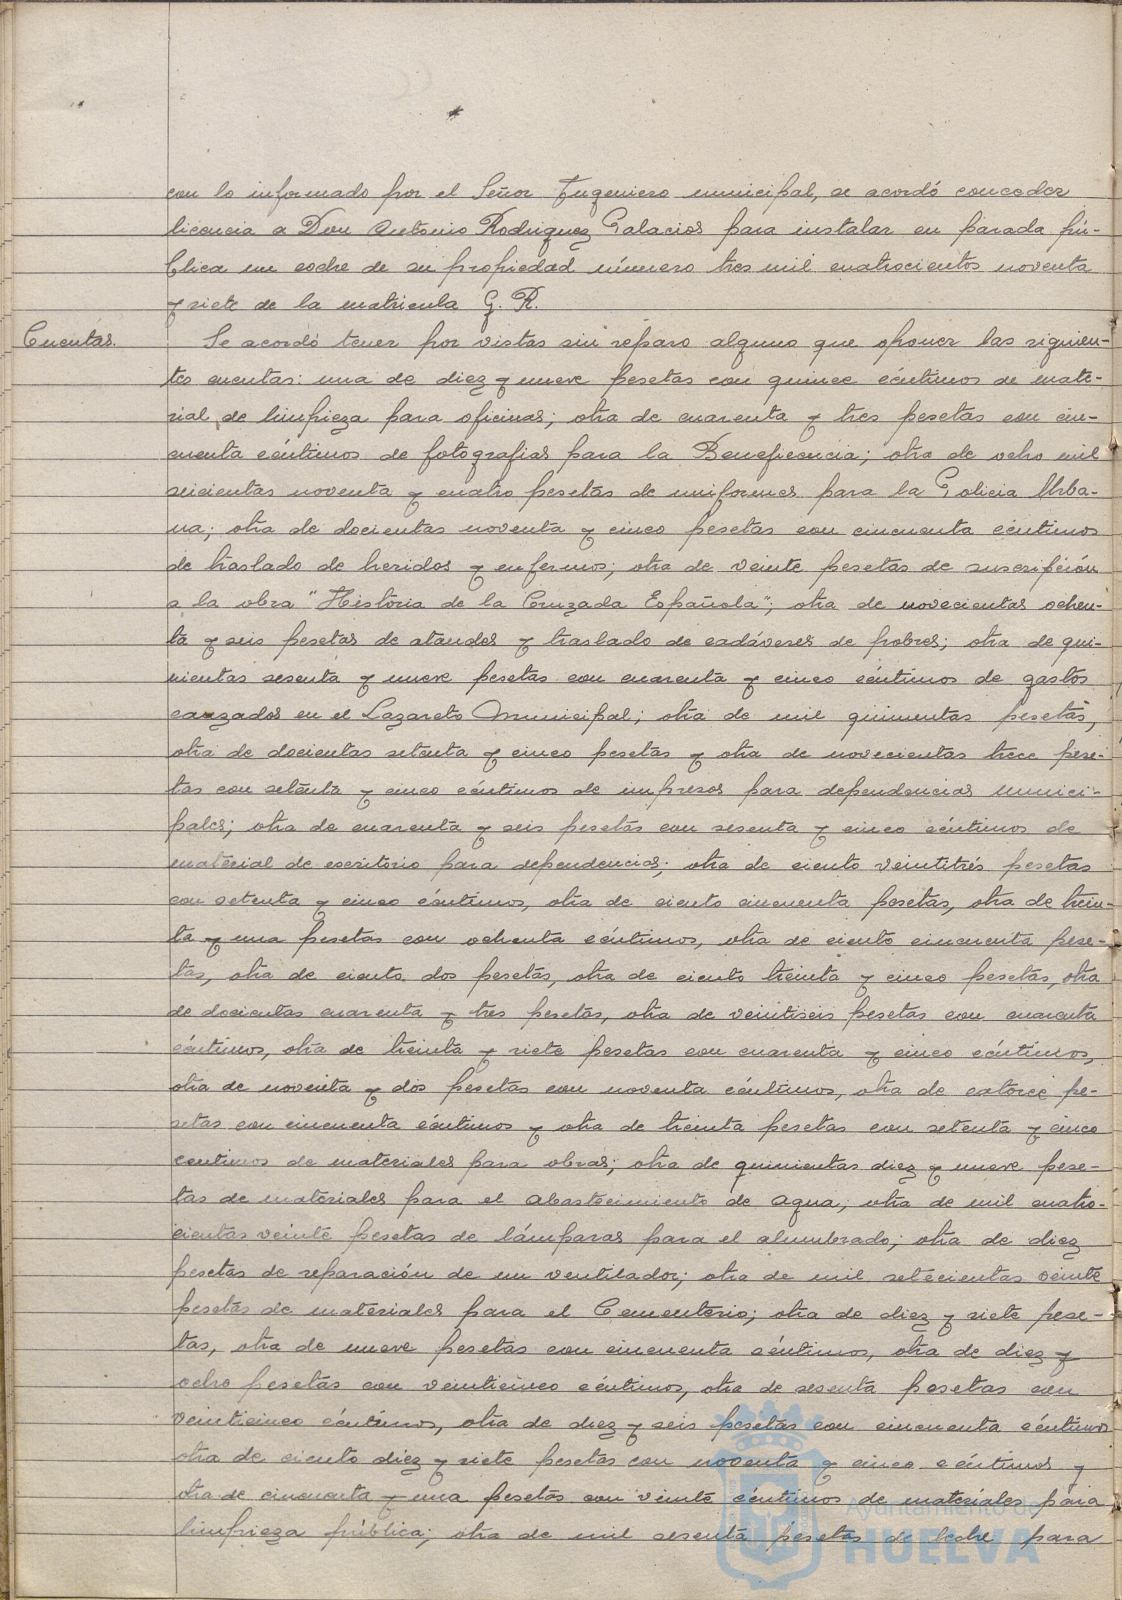 con lo informado por el Señor Ingeniero municipal, se acordó conceder
licencia a Don Antonio Rodriguez Palacios para instalar en parada pú-
blica un coche de su propiedad número tres mil cuatrocientos noventa
y siete de la matricula G. R.
Cuentas. Se acordó tener por vistas sin reparo alguno que oponer las siguien-
tes cuentas: una de diez y nueve pesetas con quince céntimos de mate-
rial de limpieza para oficinas; otra de cuarenta y tres pesetas con cin-
cuenta céntimos de fotografias para la Beneficencia; otra de ocho mil
seicientas noventa y cuatro pesetas de uniformes para la Policia Urba-
na; otra de docientas noventa y cinco pesetas con cincuenta céntimos
de traslado de heridos y enfermos; otra de veinte pesetas de suscripción
a la obra "Historia de la Cruzada Española"; otra de novecientas ochen-
ta y seis pesetas de ataudes y traslado de cadáveres de pobres; otra de qui-
nientas sesenta y nueve pesetas con cuarenta y cinco céntimos de gastos
cauzados en el Lazareto Municipal; otra de mil quinientas pesetas,
otra de docientas setenta y cinco pesetas y otra de novecientas trece pese-
tas con setenta y cinco céntimos de impresos para dependencias munici-
pales; otra de cuarenta y seis pesetas con sesenta y cinco céntimos de
material de escritorio para dependencias; otra de ciento veintitrés pesetas
con setenta y cinco céntimos, otra de ciento cincuenta pesetas, otra de trein-
ta y una pesetas con ochenta céntimos, otra de ciento cincuenta pese-
tas, otra de ciento dos pesetas, otra de ciento treinta y cinco pesetas, otra
de docientas cuarenta y tres pesetas, otra de veintiseis pesetas con cuarenta
céntimos, otra de treinta y siete pesetas con cuarenta y cinco céntimos,
otra de noventa y dos pesetas con noventa céntimos, otra de catorce pe-
setas con cincuenta céntimos y otra de treinta pesetas con setenta y cinco
centimos de materiales para obras; otra de quinientas diez y nueve pese-
tas de materiales para el abastecimiento de agua; otra de mil cuatro-
cientas veinte pesetas de lámparas para el alumbrado; otra de diez
pesetas de reparación de un ventilador; otra de mil setecientas veinte
pesetas de materiales para el Cementerio; otra de diez y siete pese-
tas, otra de nueve pesetas con cincuenta céntimos, otra de diez y
ocho pesetas con veinticinco céntimos, otra de sesenta pesetas con
veinticinco céntimos, otra de diez y seis pesetas con cincuenta céntimos
otra de ciento diez y siete pesetas con noventa y cinco céntimos y
otra de cincuenta y una pesetas con veinte céntimos de materiales para
limpieza pública; otra de mil sesenta pesetas de leche para
Ayuntamiento de
HUELVA